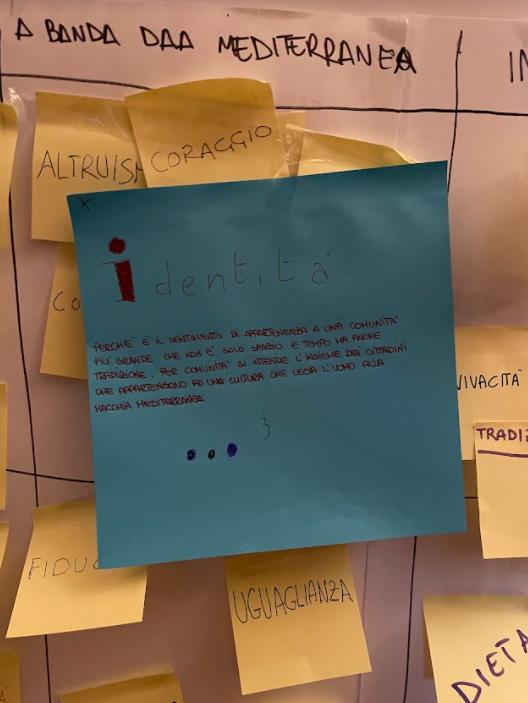 A BANDA DAA MEDITERRANEA
ALTRUIS
CORAGGIO
CO
x
identità
PERCHE' E' IL SENTIMENTO DI APPARTENENZA A UNA COMUNITA'
PIU' GRANDE CHE NON E' SOLO SPAZIO E TEMPO MA ANCHE
TRADIZIONE. PER COMUNITA' SI INTENDE L'INSIEME DEI CITTADINI
CHE APPARTENGONO AD UNA CULTURA CHE LEGA L'UOMO ALLA
MACCHIA MEDITERRANEA
3
VIVACITÀ
TRADIZ
FIDUC
UGUAGLIANZA
DIETA